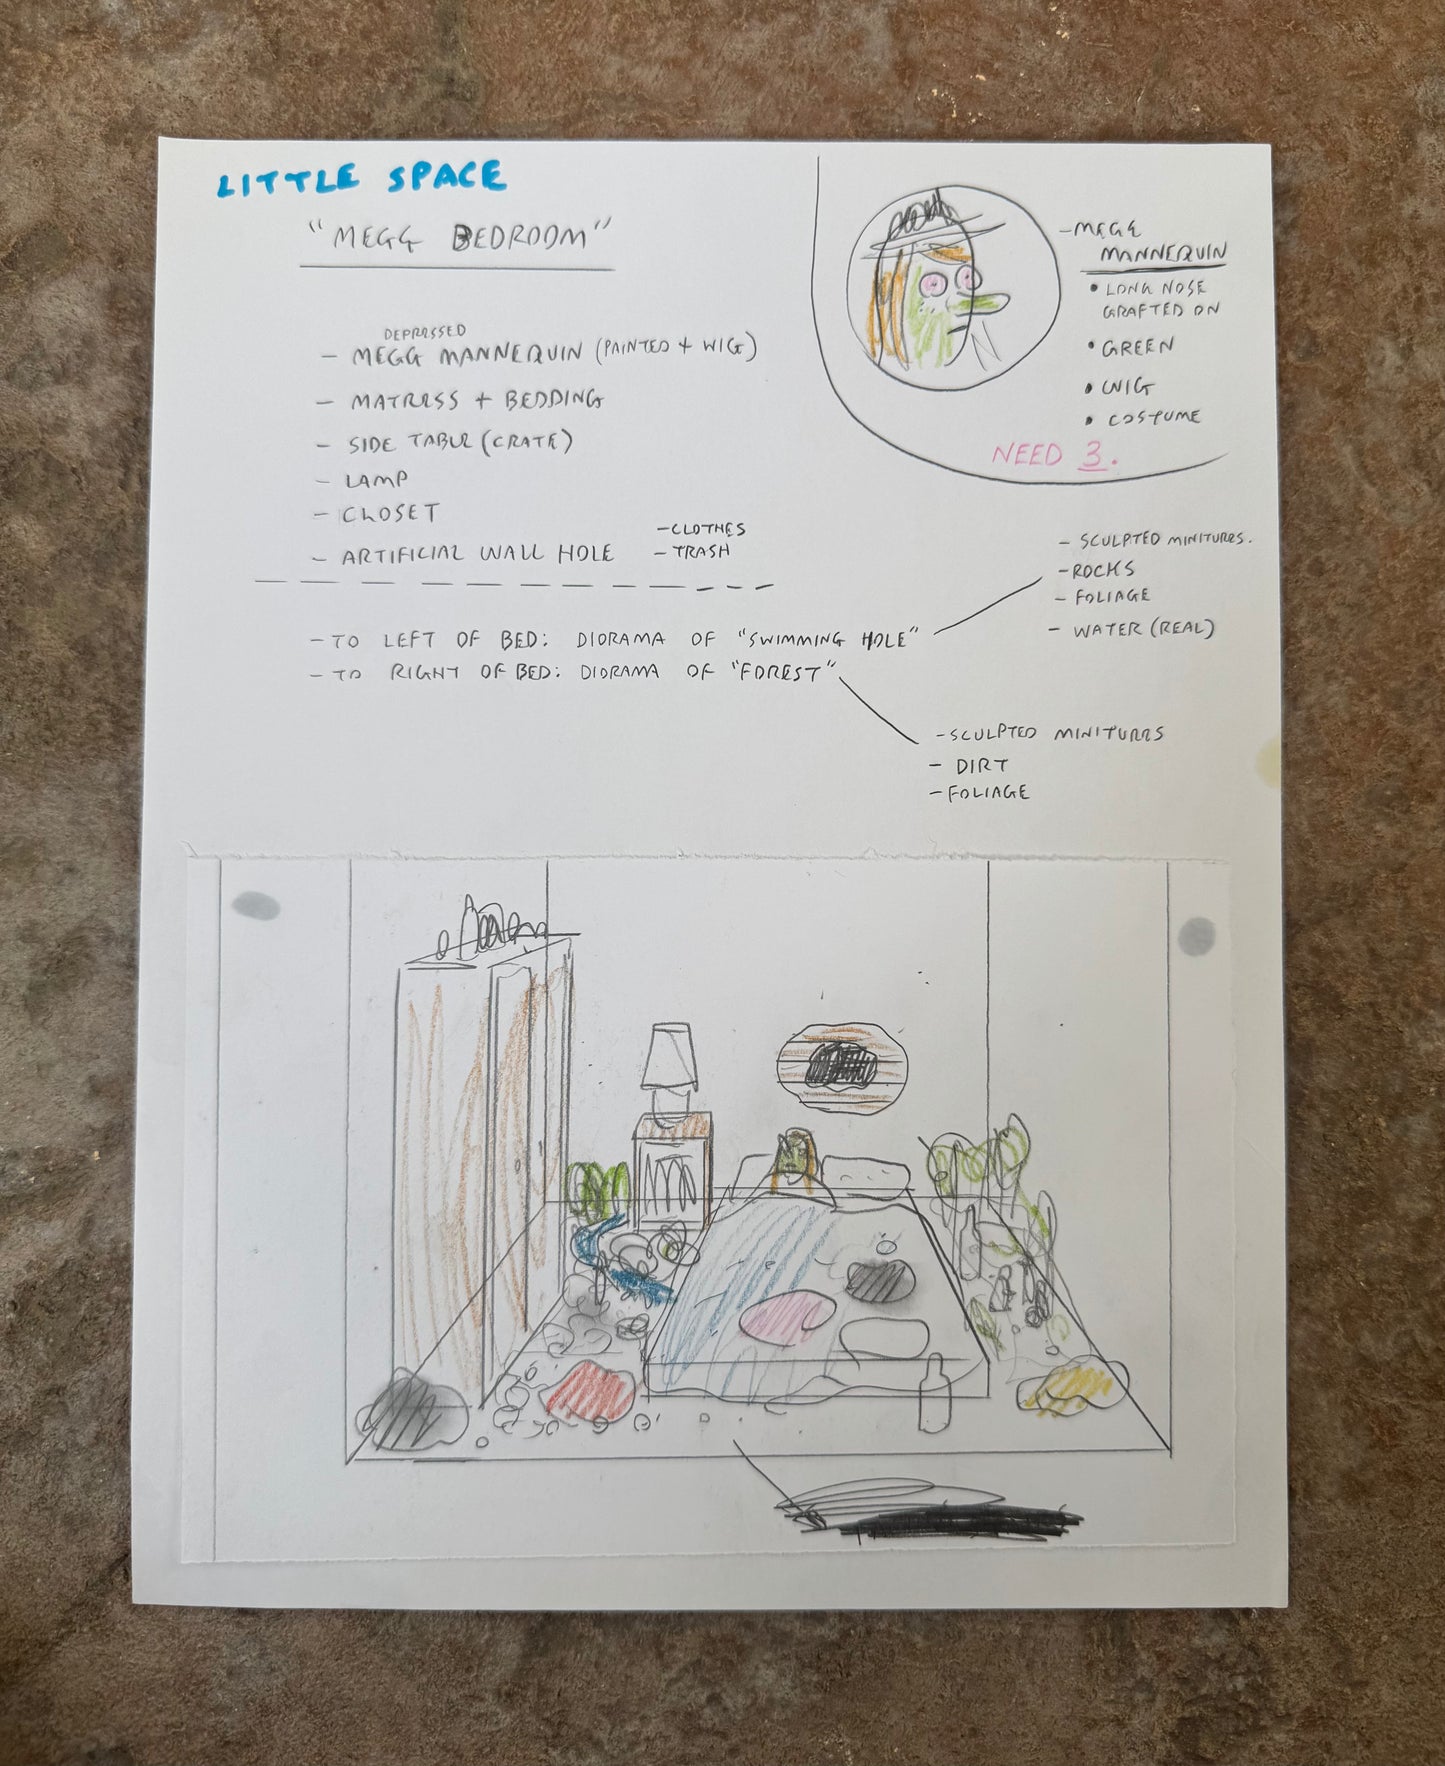 LITTLE SPACE
"MEGG BEDROOM"
DEPRESSED
- MEGG MANNEQUIN (PAINTED + WIG)
- MATRESS + BEDDING
- SIDE TABLE (CRATE)
- LAMP
- CLOSET
- ARTIFICIAL WALL HOLE
- CLOTHES
- TRASH
- TO LEFT OF BED: DIORAMA OF "SWIMMING HOLE"
- TO RIGHT OF BED: DIORAMA OF "FOREST"
- MEGG
MANNEQUIN
• LONG NOSE
GRAFTED ON
• GREEN
• WIG
• COSTUME
NEED 3.
- SCULPTED MINITURES.
- ROCKS
- FOLIAGE
- WATER (REAL)
- SCULPTED MINITURES
- DIRT
- FOLIAGE